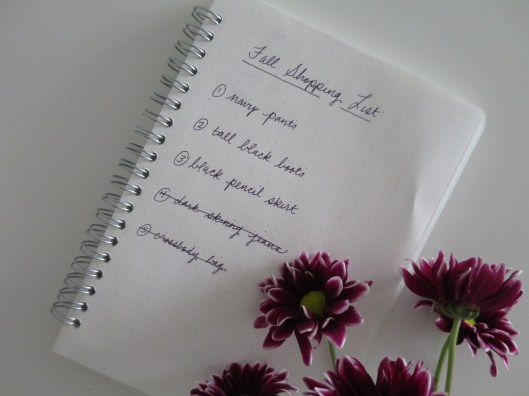 Fall Shopping List:
① navy pants
② tall black boots
③ black pencil skirt
④ dark skinny jeans
⑤ crossbody bag